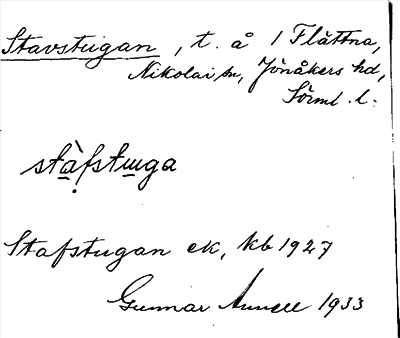 Stavstugan, t. å 1 Flättna,
Nikolai sn, Jönåkers hd,
Sörml. l.
stàfstuga
Stafstugan ek, kb 1927
Gunnar 1933